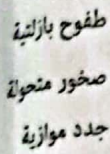 طفوح بازلتية
صخور متحولة
جدد موازية